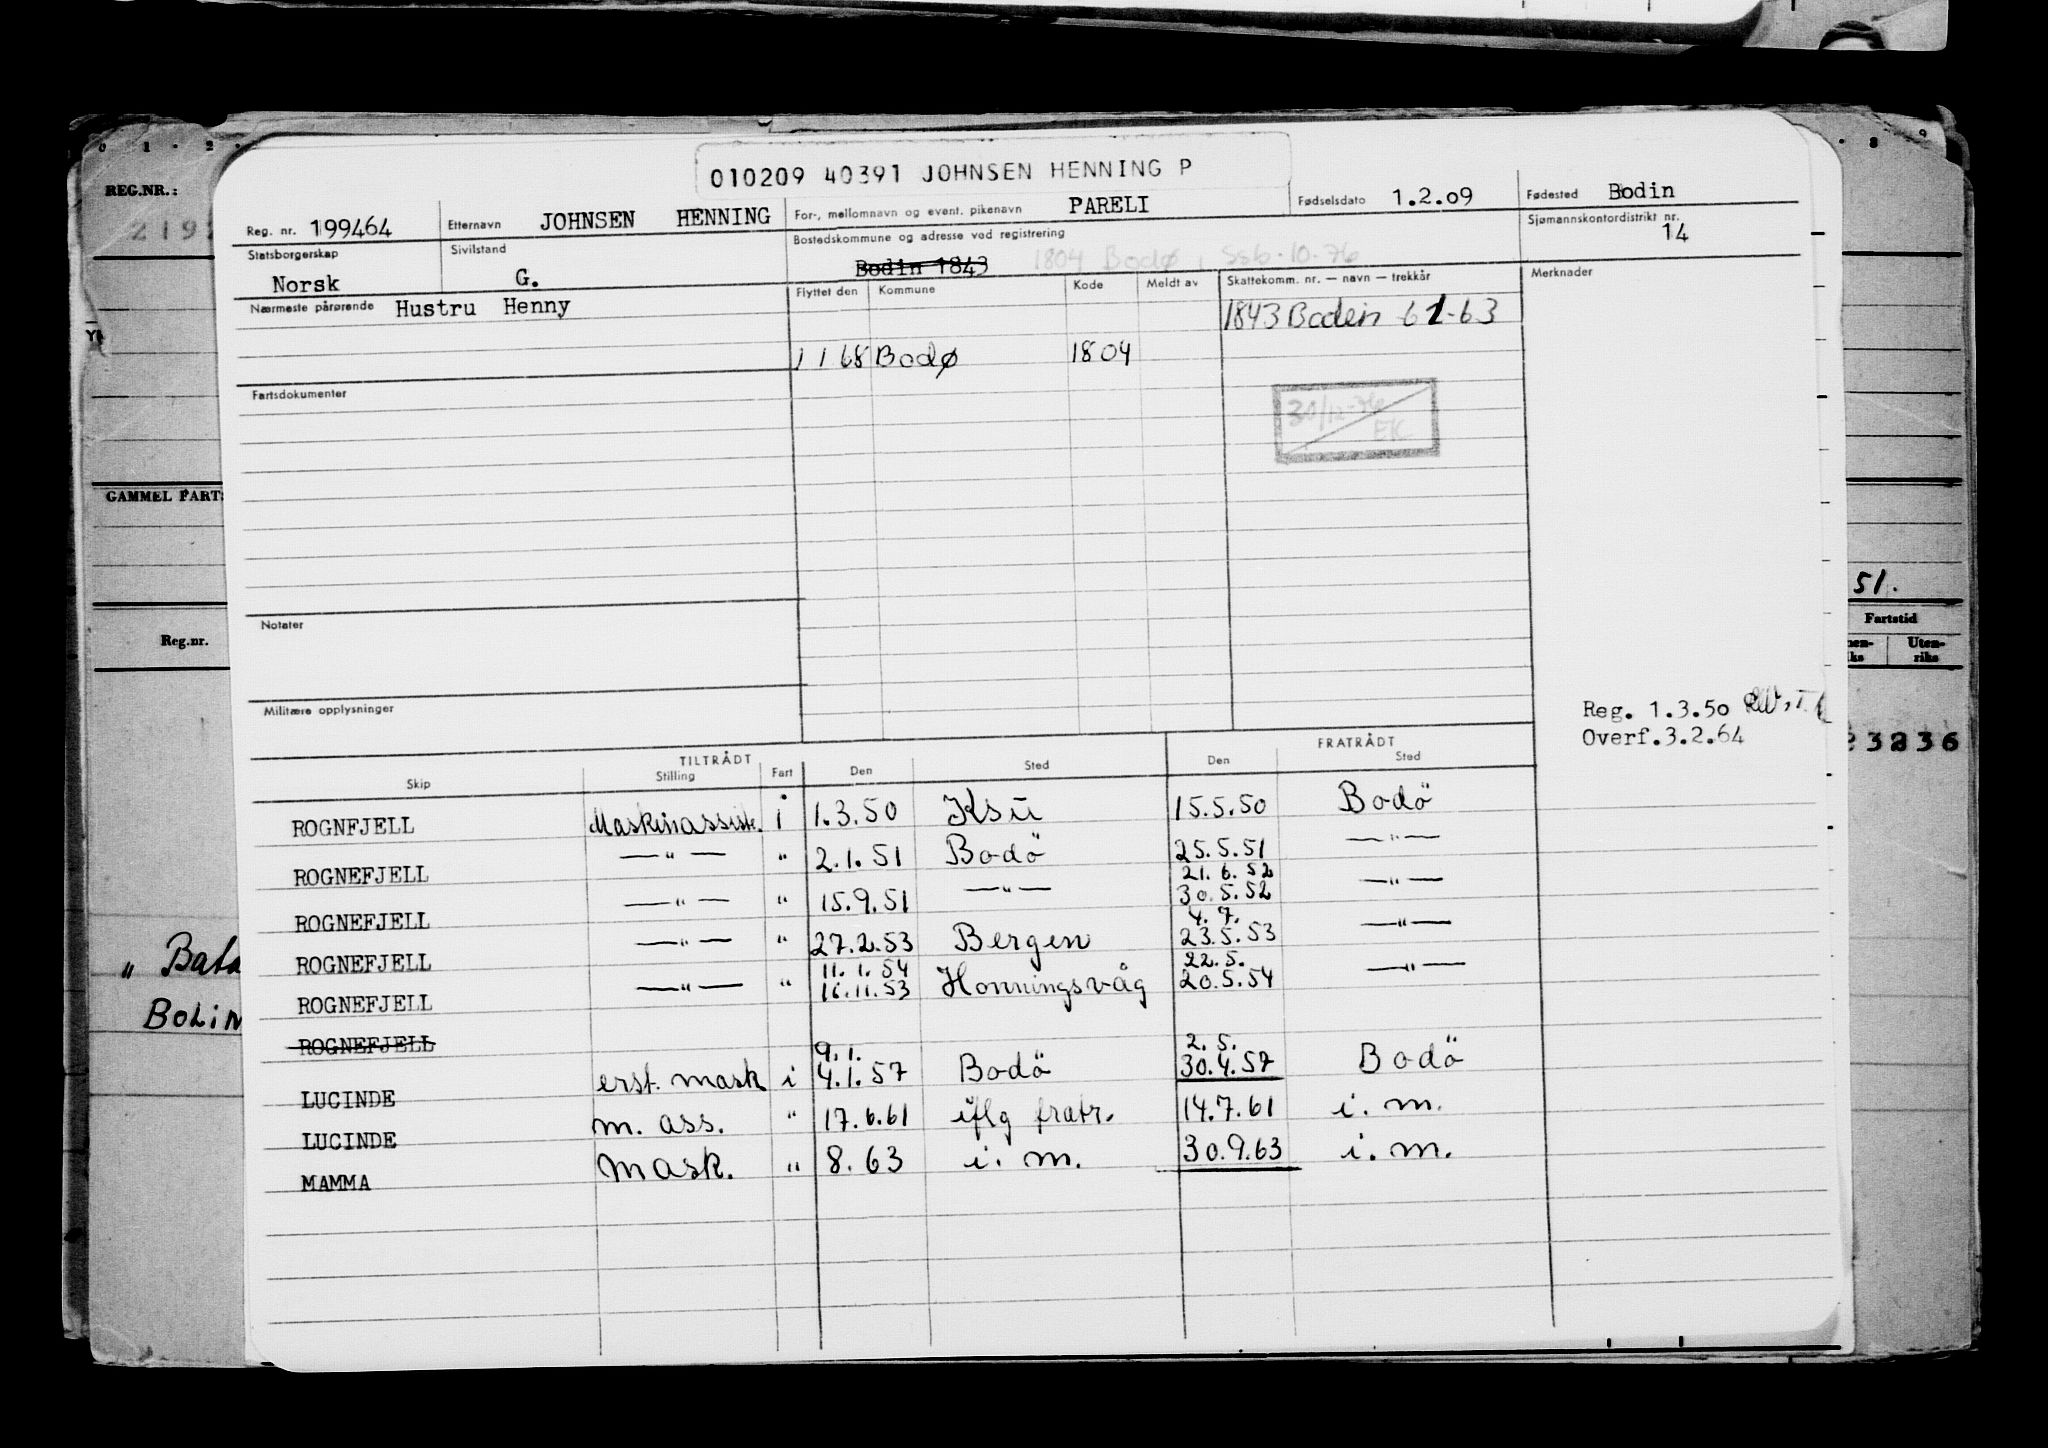 010209 40391 JOHNSEN HENNING P
REG.NR.:
Reg. nr. 199464 Etternavn JOHNSEN HENNING For-, mellomnavn og event. pikenavn PARELI Fødselsdato 1.2.09 Fødested Bodin
Statsborgerskap Norsk Sivilstand G. Bostedskommune og adresse ved registrering Bodin 1843 1804 Bodø Sjømannskontordistrikt nr. 14
Nærmeste pårørende Hustru Henny Flyttet den Kommune Kode Meldt av Skattekomm. nr. — navn — trekkår Merknader
1843 Bodin 61-63
1 1 68 Bodø 1804
Fartsdokumenter
30/12-76
EK
GAMMEL FART
51.
Notater
Reg.nr.
Fartstid
Uten-
riks
Militære opplysninger
Reg. 1.3.50
Overf.3.2.64
3236
TILTRÅDT FRATRÅDT
Skip Stilling Fart Den Sted Den Sted
ROGNFJELL Maskinassist. i 1.3.50 Ksu 15.5.50 Bodö
ROGNEFJELL —"— " 2.1.51 Bodö 25.5.51 —"—
21.6.52
ROGNEFJELL —"— " 15.9.51 —"— 30.5.52 —"—
4.7.
ROGNEFJELL —"— " 27.2.53 Bergen 23.5.53 —"—
11.1.54 22.5.
ROGNEFJELL —"— " 16.11.53 Honningsvåg 20.5.54 —"—
ROGNEFJELL
9.1. 2.5.
LUCINDE erst. mask i 4.1.57 Bodö 30.4.57 Bodö
LUCINDE m. ass. " 17.6.61 iflg fratr. 14.7.61 i. m.
MAMMA mask. " 8.63 i. m. 30.9.63 i. m.